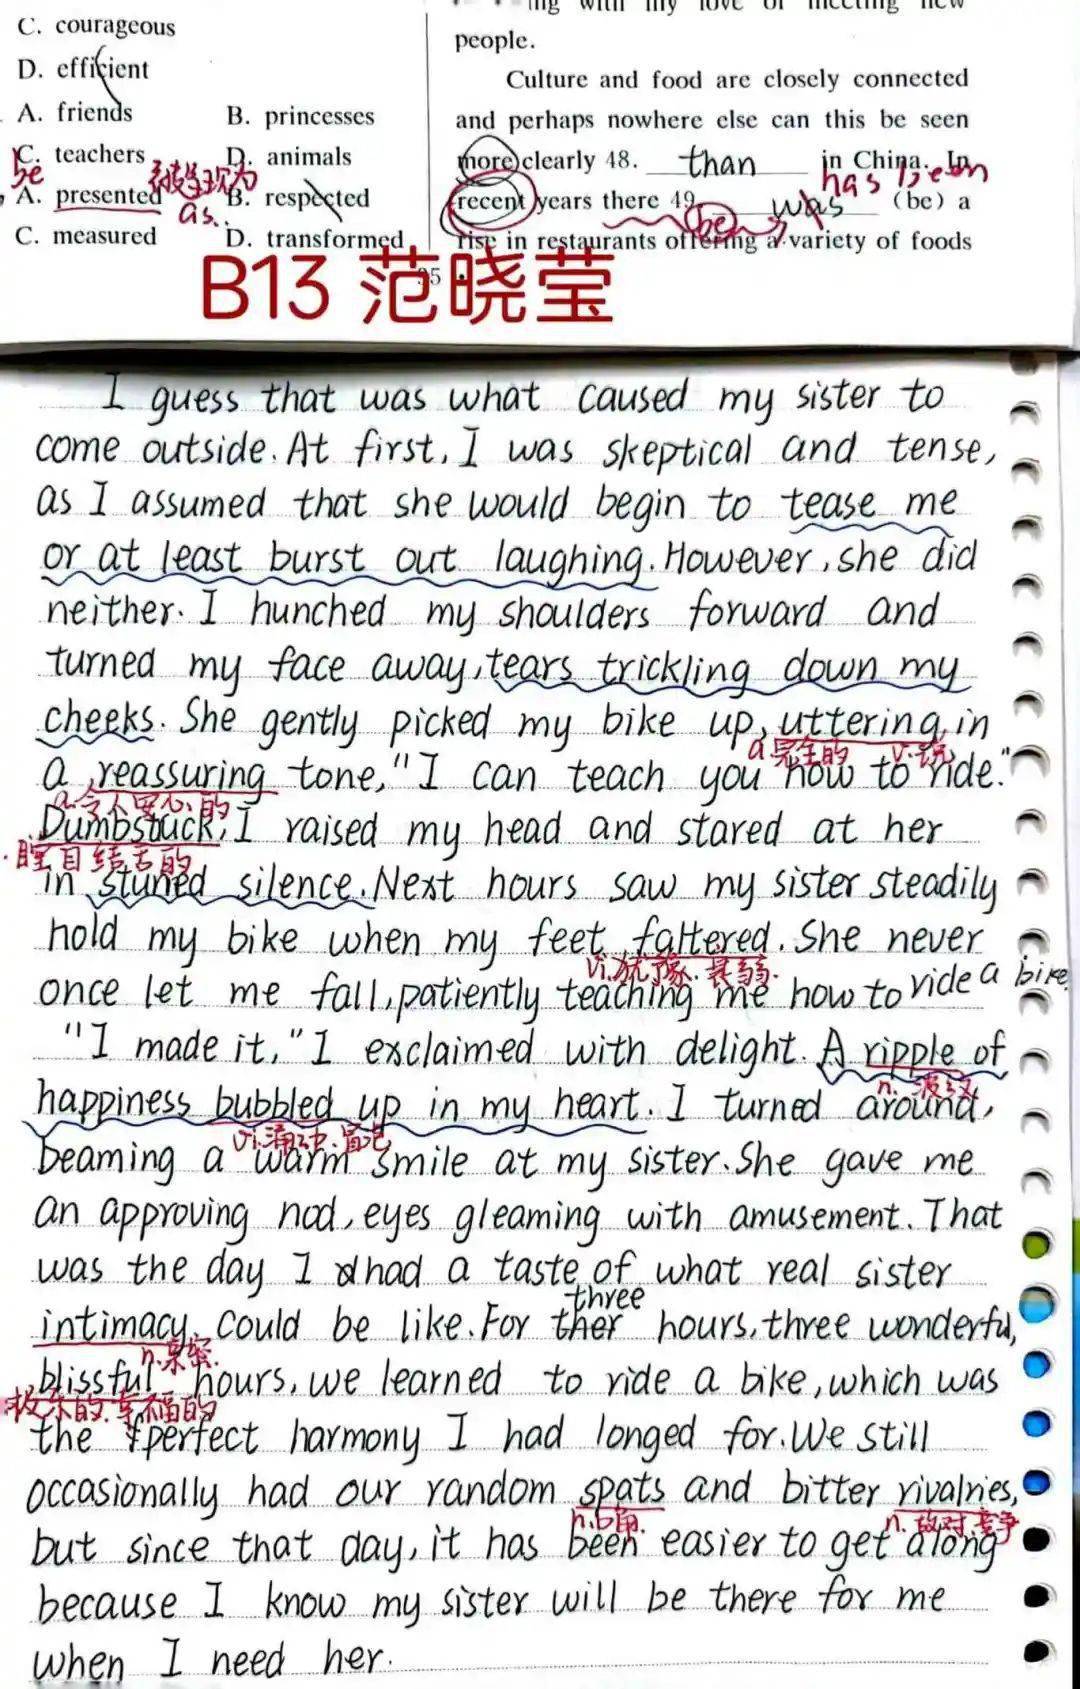 C. courageous
D. efficient
A. friends B. princesses
C. teachers D. animals
be
被呈现为
A. presented B. respected
as..
C. measured D. transformed
ing with my love of meeting new
people.
Culture and food are closely connected
and perhaps nowhere else can this be seen
more clearly 48. than in China. In
has been
recent years there 49. was (be) a
be
rise in restaurants offering a variety of foods
35
B13 范晓莹
I guess that was what caused my sister to
come outside. At first, I was skeptical and tense,
as I assumed that she would begin to tease me
or at least burst out laughing. However, she did
neither. I hunched my shoulders forward and
turned my face away, tears trickling down my
cheeks. She gently picked my bike up, uttering, in
a.完全的 v.说
a reassuring tone, "I can teach you how to ride."
a.令人安心的
Dumbstuck, I raised my head and stared at her
瞠目结舌的
in stuned silence. Next hours saw my sister steadily
hold my bike when my feet faltered. She never
vi.犹豫. 畏弱.
once let me fall, patiently teaching me how to ride a bike.
"I made it," I exclaimed with delight. A ripple of
n. 波纹
happiness bubbled up in my heart. I turned around,
vi.涌动.冒泡
beaming a warm smile at my sister. She gave me
an approving nod, eyes gleaming with amusement. That
was the day I had a taste of what real sister
three
intimacy could be like. For ther hours, three wonderful,
n.亲密.
blissful hours, we learned to ride a bike, which was
极乐的.幸福的
the perfect harmony I had longed for. We still
occasionally had our random spats and bitter rivalries,
n.口角. n. 敌对 竞争
but since that day, it has been easier to get along
because I know my sister will be there for me
when I need her.